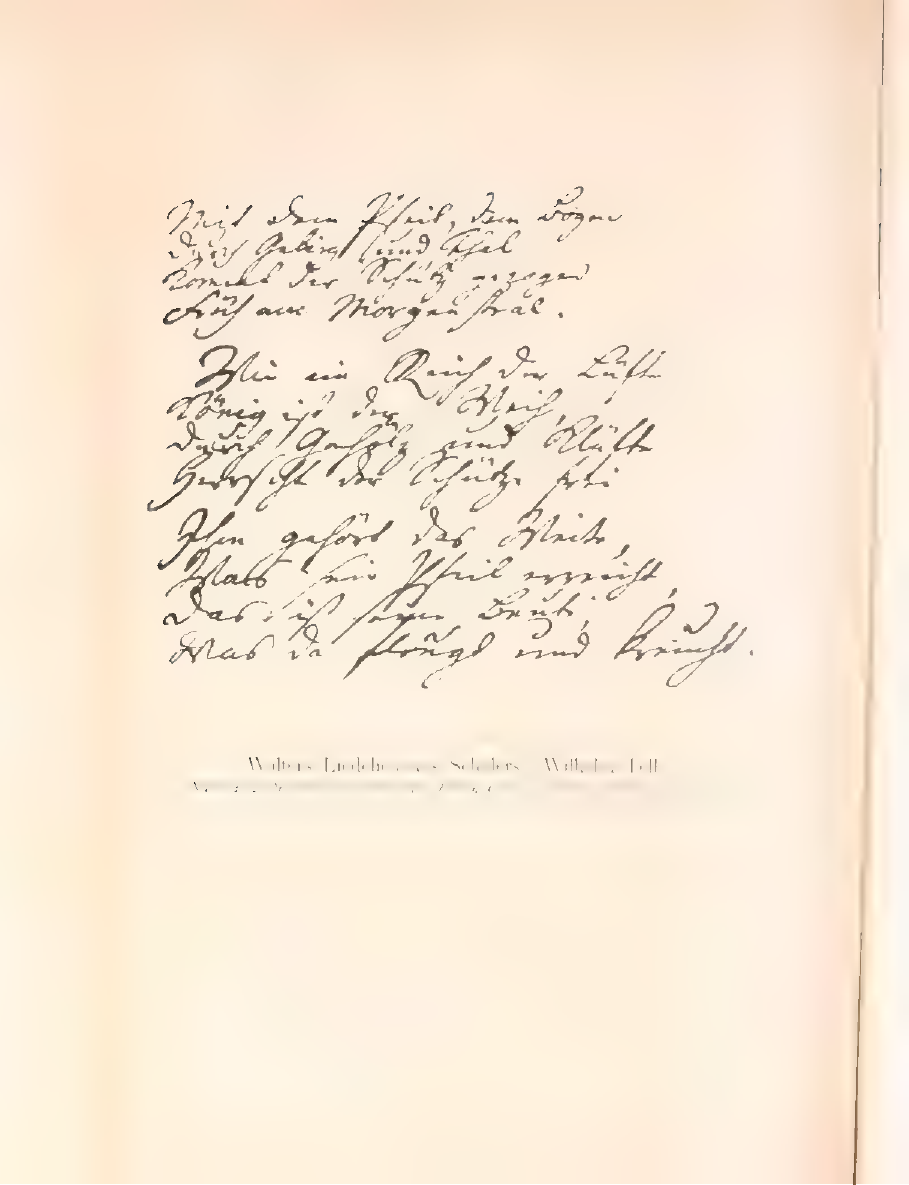 Mit dem Pfeil, dem Bogen
durch Gebirg und Thal
Kommt der Schütz gezogen
Früh am Morgenstral.
Wie im Reich der Lüfte
König ist der Weih,
durch Gehölz und Klüfte
Herrscht der Schütze frei
Ihm gehört das Weite,
Was sein Pfeil erreicht,
das ist seine Beute,
Was da fleugt und kreucht.
Walters Liedchen aus Schillers Wilhelm Tell